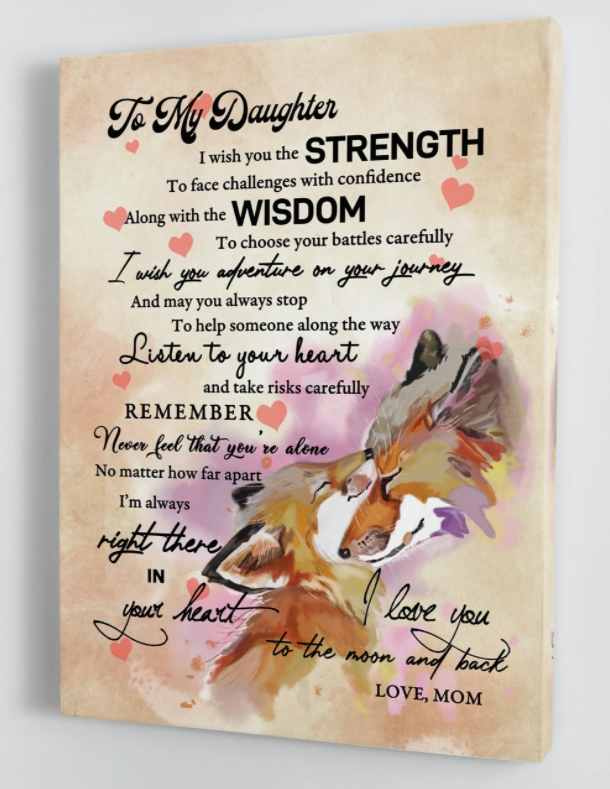 To My Daughter
I wish you the STRENGTH
To face challenges with confidence
Along with the WISDOM
To choose your battles carefully
I wish you adventure on your journey
And may you always stop
To help someone along the way
Listen to your heart
and take risks carefully
REMEMBER
Never feel that you're alone
No matter how far apart
I'm always
right there
IN
your heart
I love you
to the moon and back
LOVE, MOM